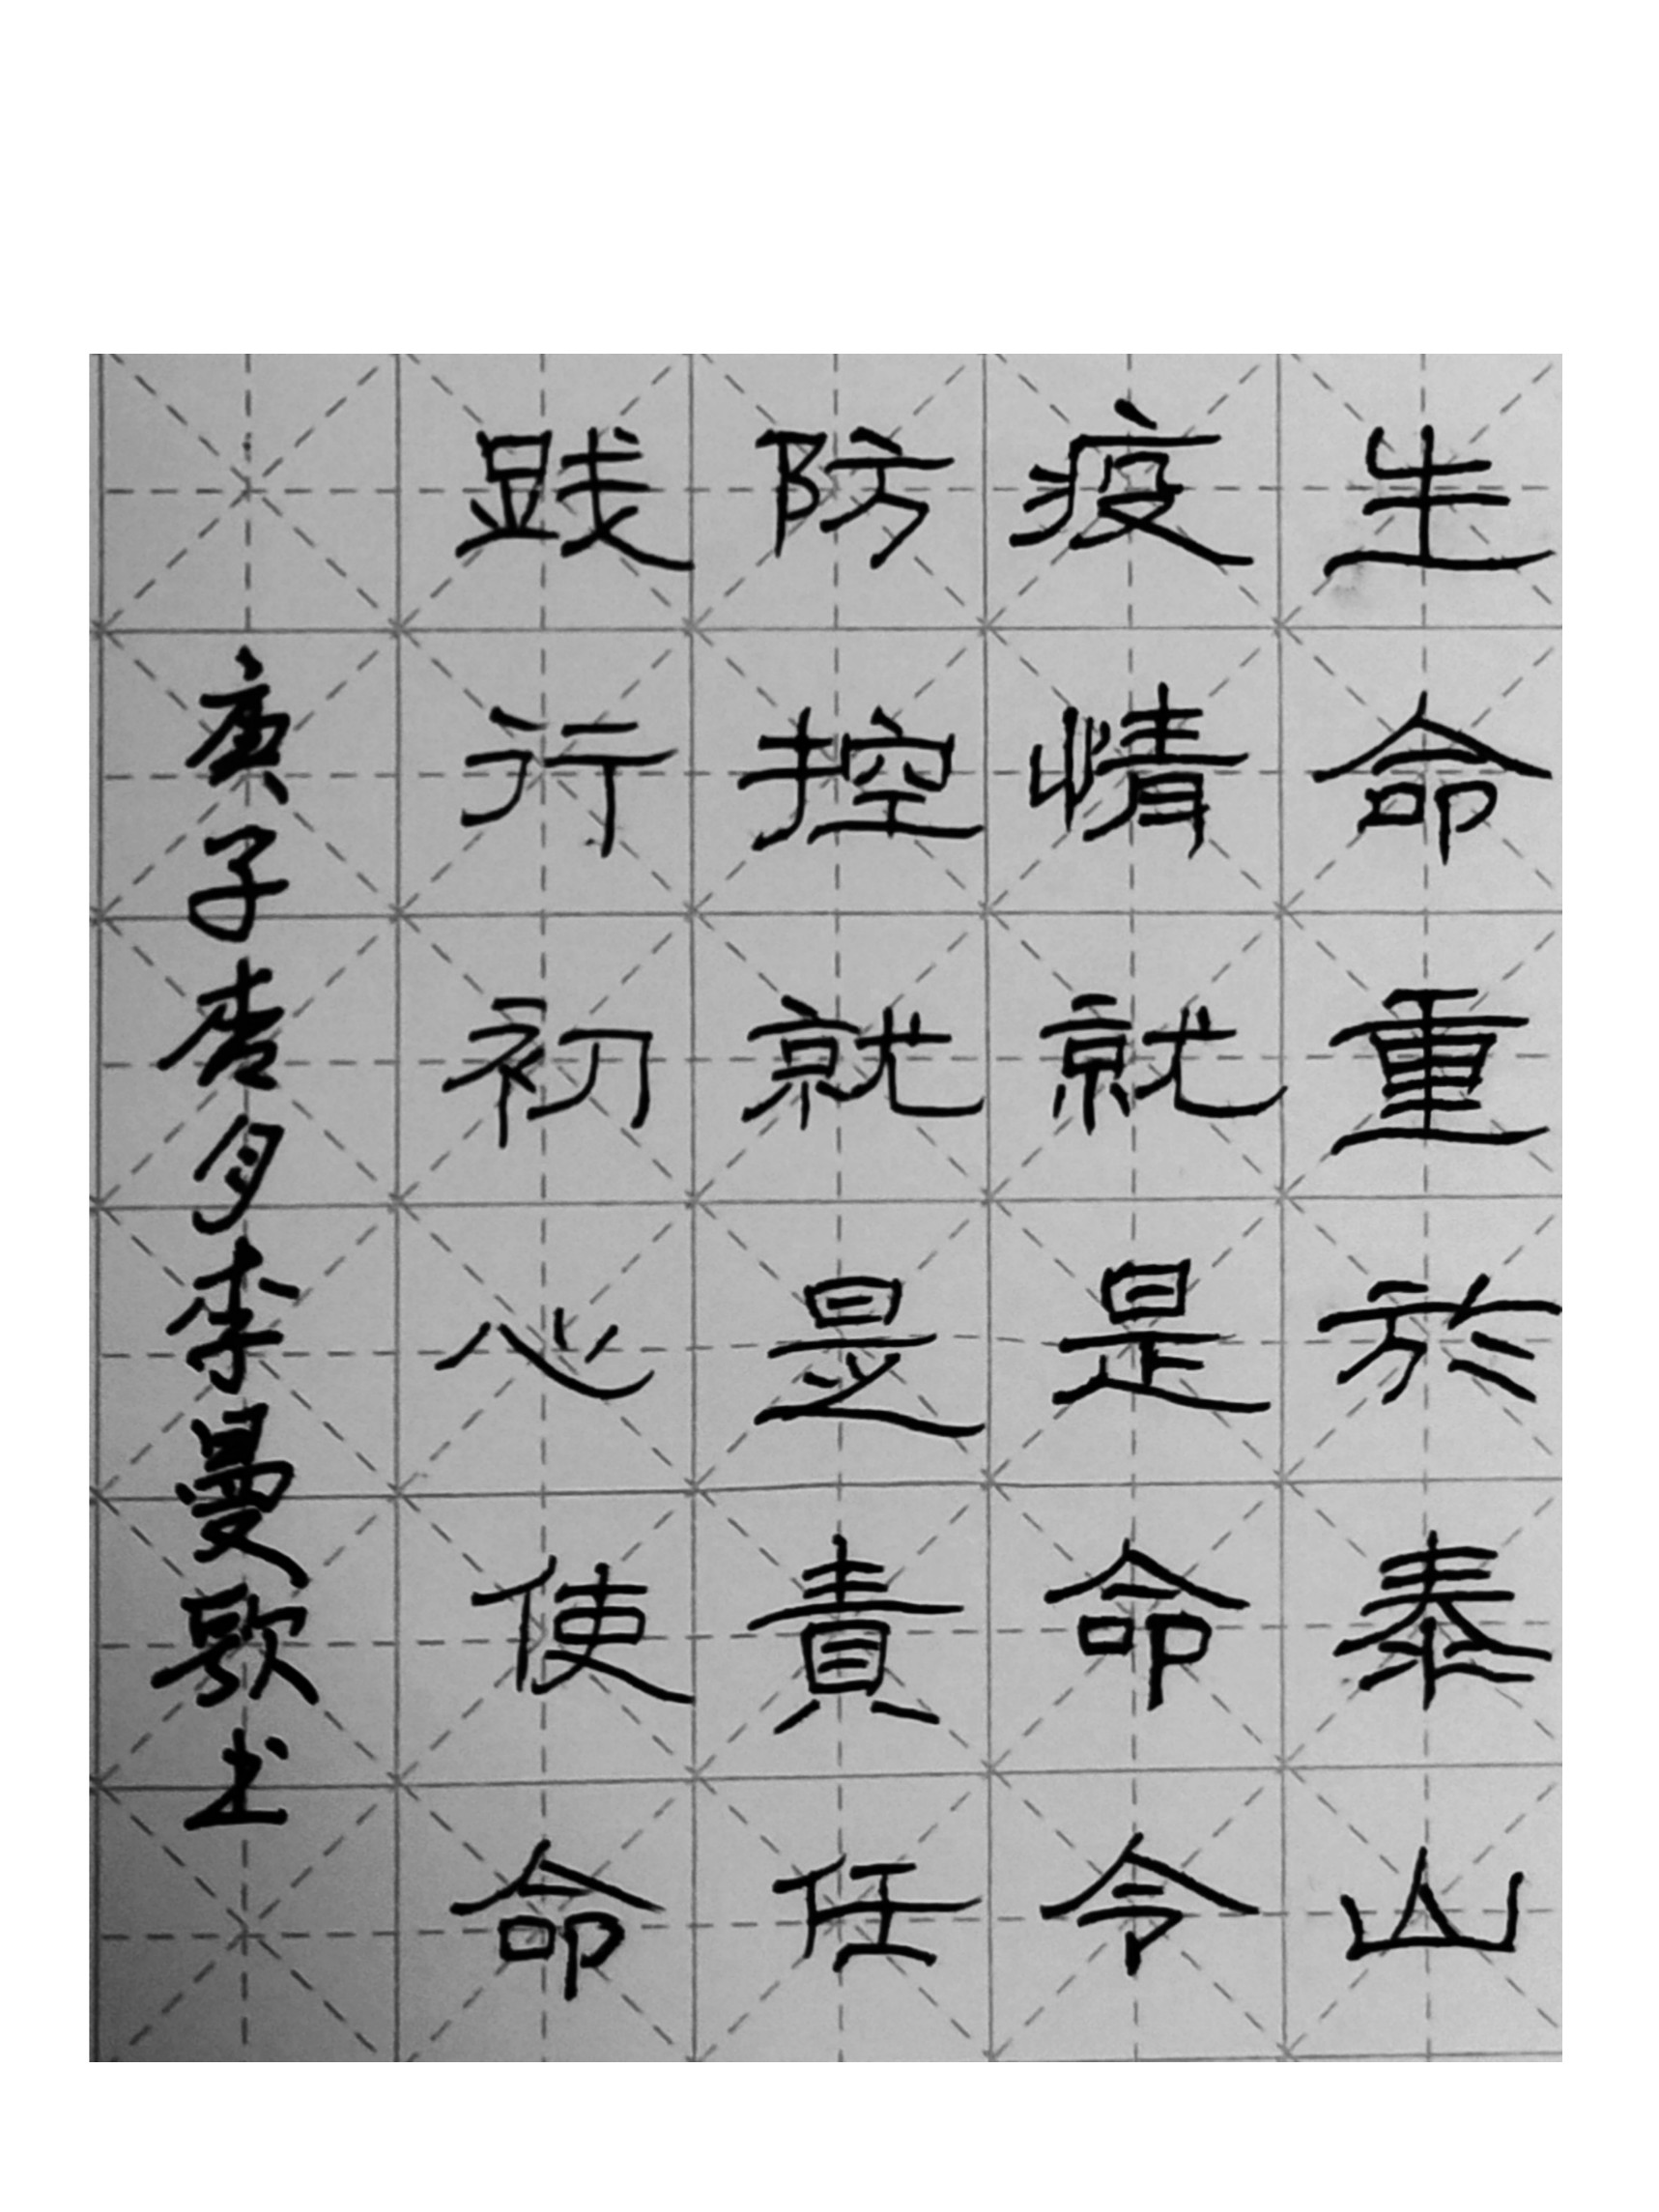 生命重於泰山
疫情就是命令
防控就是責任
践行初心使命
庚子杏月李曼歌书